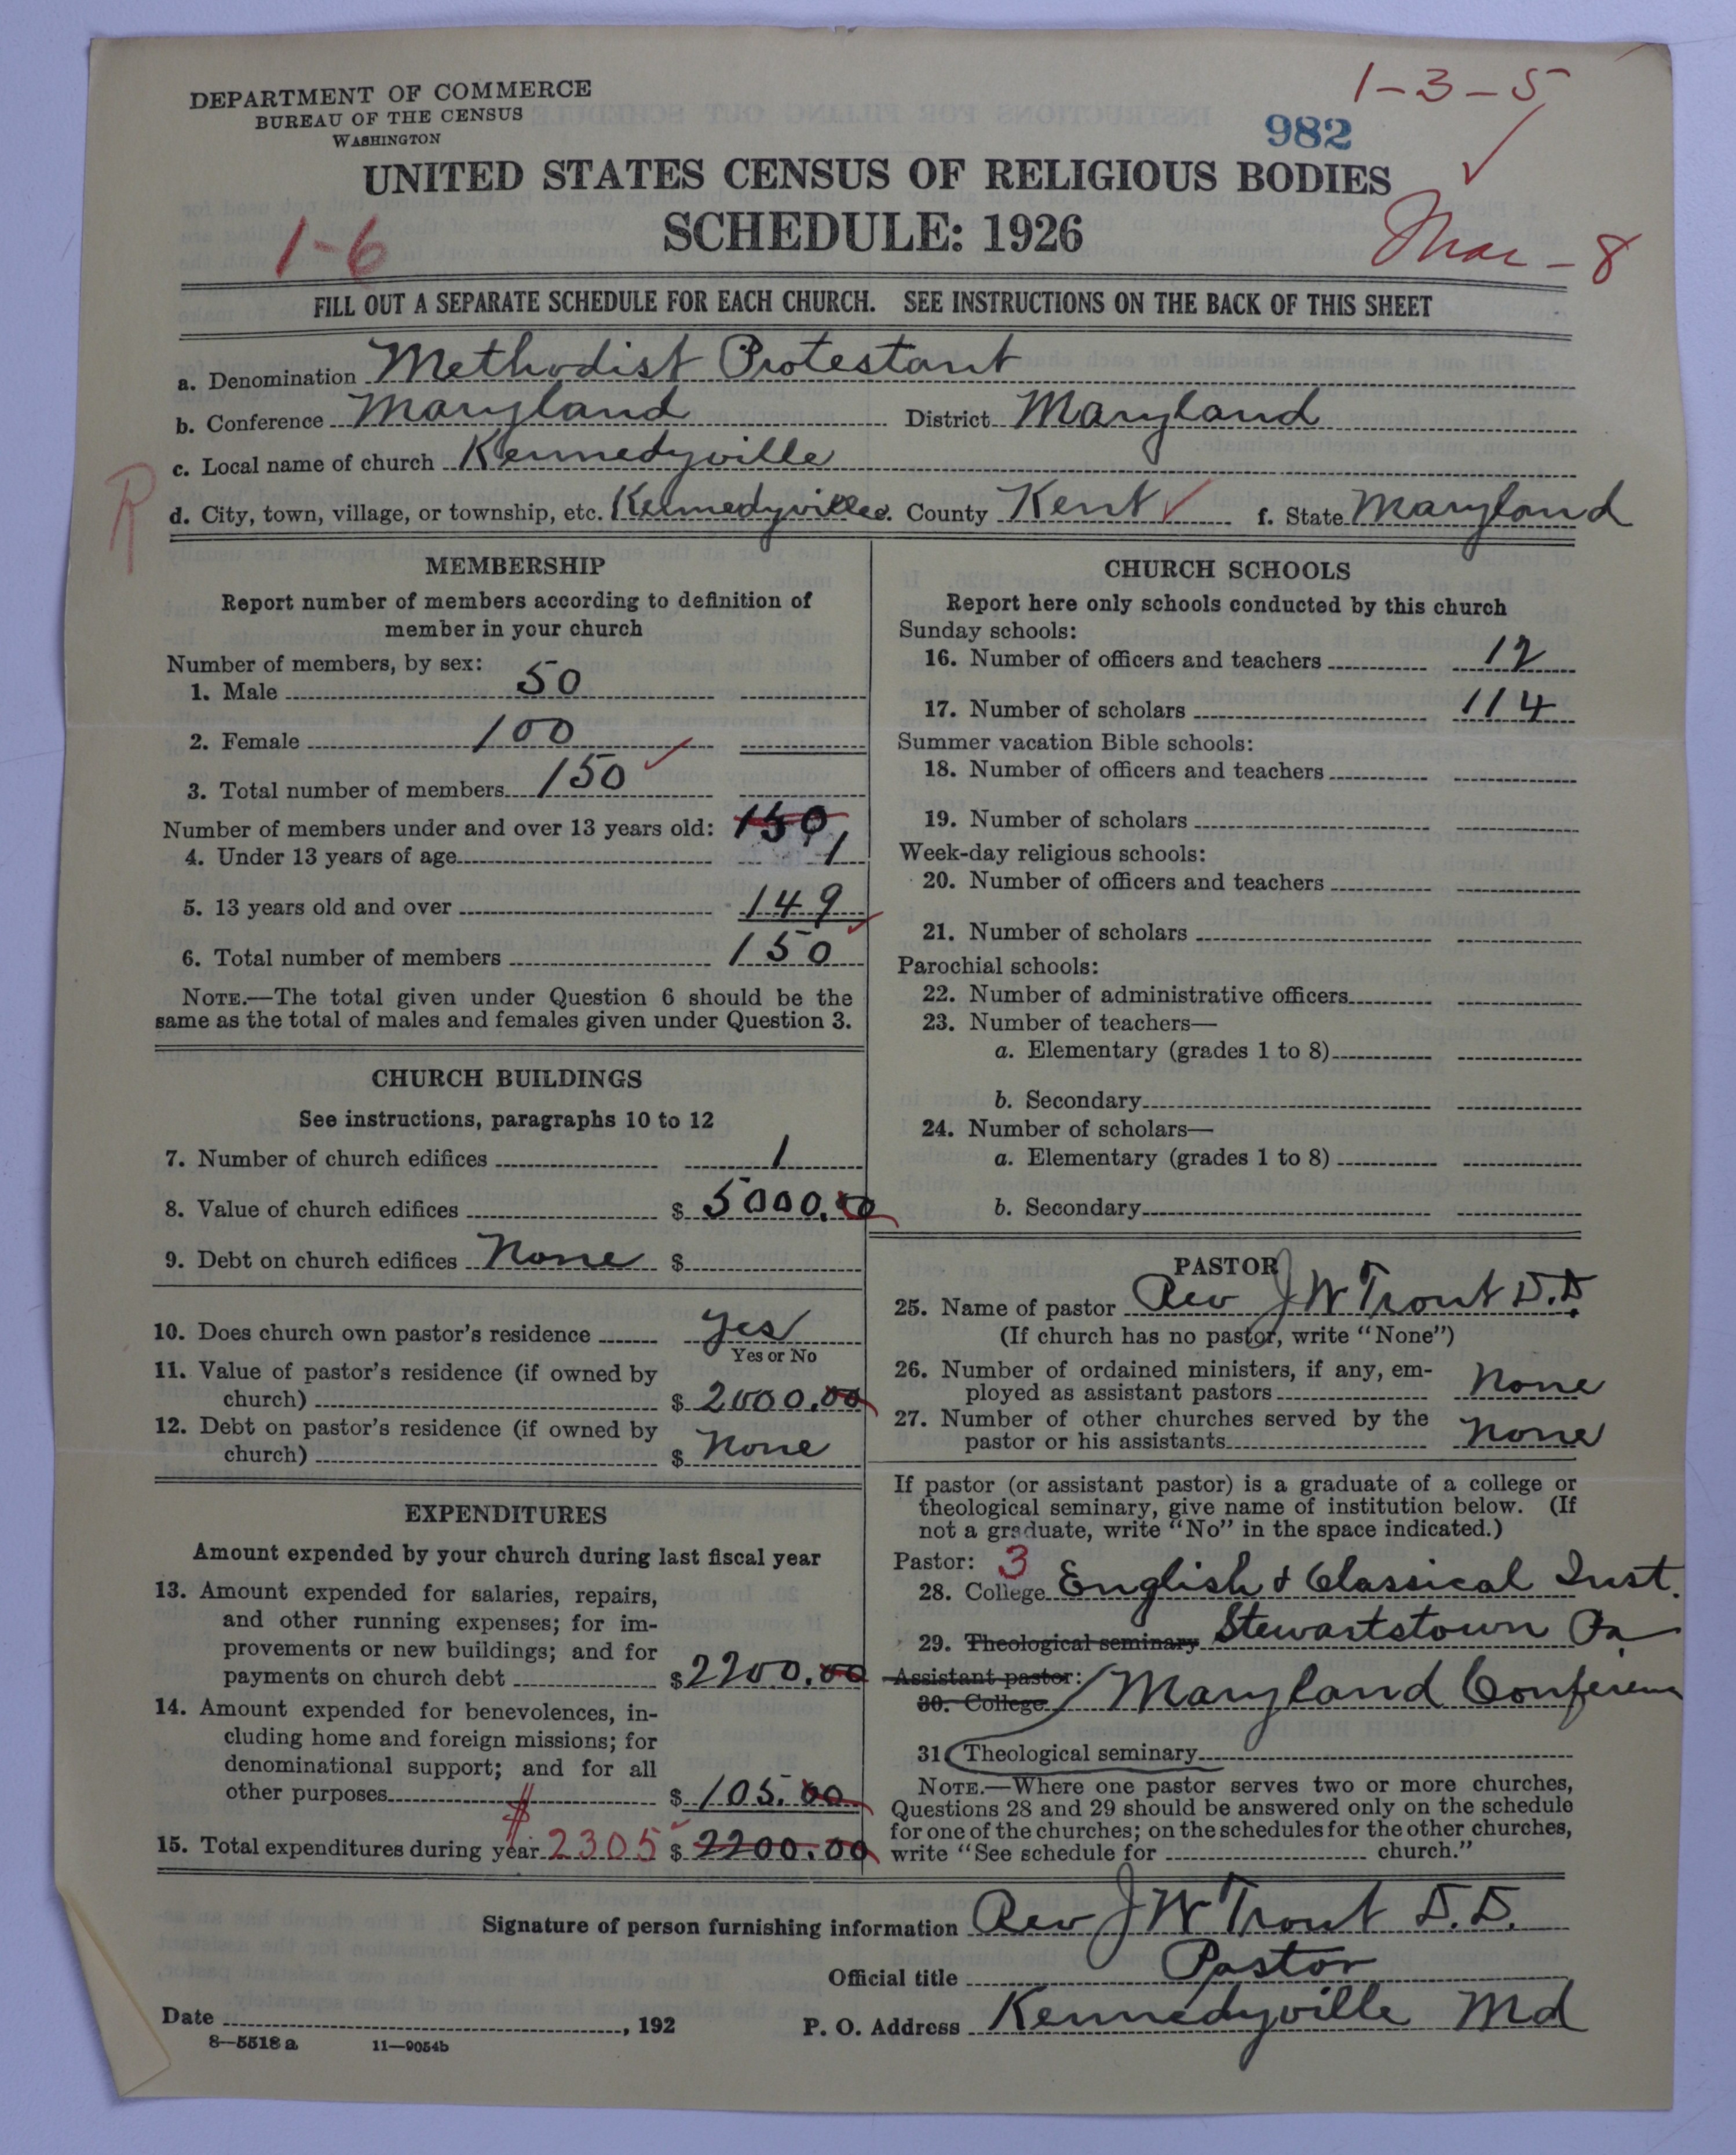 DEPARTMENT OF COMMERCE
BUREAU OF THE CENSUS
WASHINGTON
1-3-5
982
UNITED STATES CENSUS OF RELIGIOUS BODIES
SCHEDULE: 1926
1-6
Mar - 8
FILL OUT A SEPARATE SCHEDULE FOR EACH CHURCH. SEE INSTRUCTIONS ON THE BACK OF THIS SHEET
a. Denomination Methodist Protestant
b. Conference Maryland District Maryland
c. Local name of church Kennedyville
R
d. City, town, village, or township, etc. Kennedyville e. County Kent f. State Maryland
MEMBERSHIP
Report number of members according to definition of
member in your church
Number of members, by sex:
1. Male 50
2. Female 100
3. Total number of members 150
Number of members under and over 13 years old: 150
4. Under 13 years of age 1
5. 13 years old and over 149
6. Total number of members 150
NOTE.—The total given under Question 6 should be the
same as the total of males and females given under Question 3.
CHURCH BUILDINGS
See instructions, paragraphs 10 to 12
7. Number of church edifices 1
8. Value of church edifices $ 5000.00
9. Debt on church edifices None $
10. Does church own pastor's residence yes
Yes or No
11. Value of pastor's residence (if owned by
church) $ 2000.00
12. Debt on pastor's residence (if owned by
church) $ None
EXPENDITURES
Amount expended by your church during last fiscal year
13. Amount expended for salaries, repairs,
and other running expenses; for im-
provements or new buildings; and for
payments on church debt $ 2200.00
14. Amount expended for benevolences, in-
cluding home and foreign missions; for
denominational support; and for all
other purposes $ 105.00
15. Total expenditures during year $ 2305 $ 2200.00
CHURCH SCHOOLS
Report here only schools conducted by this church
Sunday schools:
16. Number of officers and teachers 12
17. Number of scholars 114
Summer vacation Bible schools:
18. Number of officers and teachers
19. Number of scholars
Week-day religious schools:
20. Number of officers and teachers
21. Number of scholars
Parochial schools:
22. Number of administrative officers
23. Number of teachers—
a. Elementary (grades 1 to 8)
b. Secondary
24. Number of scholars—
a. Elementary (grades 1 to 8)
b. Secondary
PASTOR
25. Name of pastor Rev J W Trout D.D.
(If church has no pastor, write "None")
26. Number of ordained ministers, if any, em-
ployed as assistant pastors None
27. Number of other churches served by the
pastor or his assistants None
If pastor (or assistant pastor) is a graduate of a college or
theological seminary, give name of institution below. (If
not a graduate, write "No" in the space indicated.)
Pastor: 3
28. College English & Classical Inst.
29. Theological seminary Stewartstown Pa
Assistant pastor:
30. College Maryland Conference
31 Theological seminary
NOTE.—Where one pastor serves two or more churches,
Questions 28 and 29 should be answered only on the schedule
for one of the churches; on the schedules for the other churches,
write "See schedule for church."
Signature of person furnishing information Rev J W Trout D.D.
Official title Pastor
Date , 192 P. O. Address Kennedyville Md
8—5518 a 11—9054b